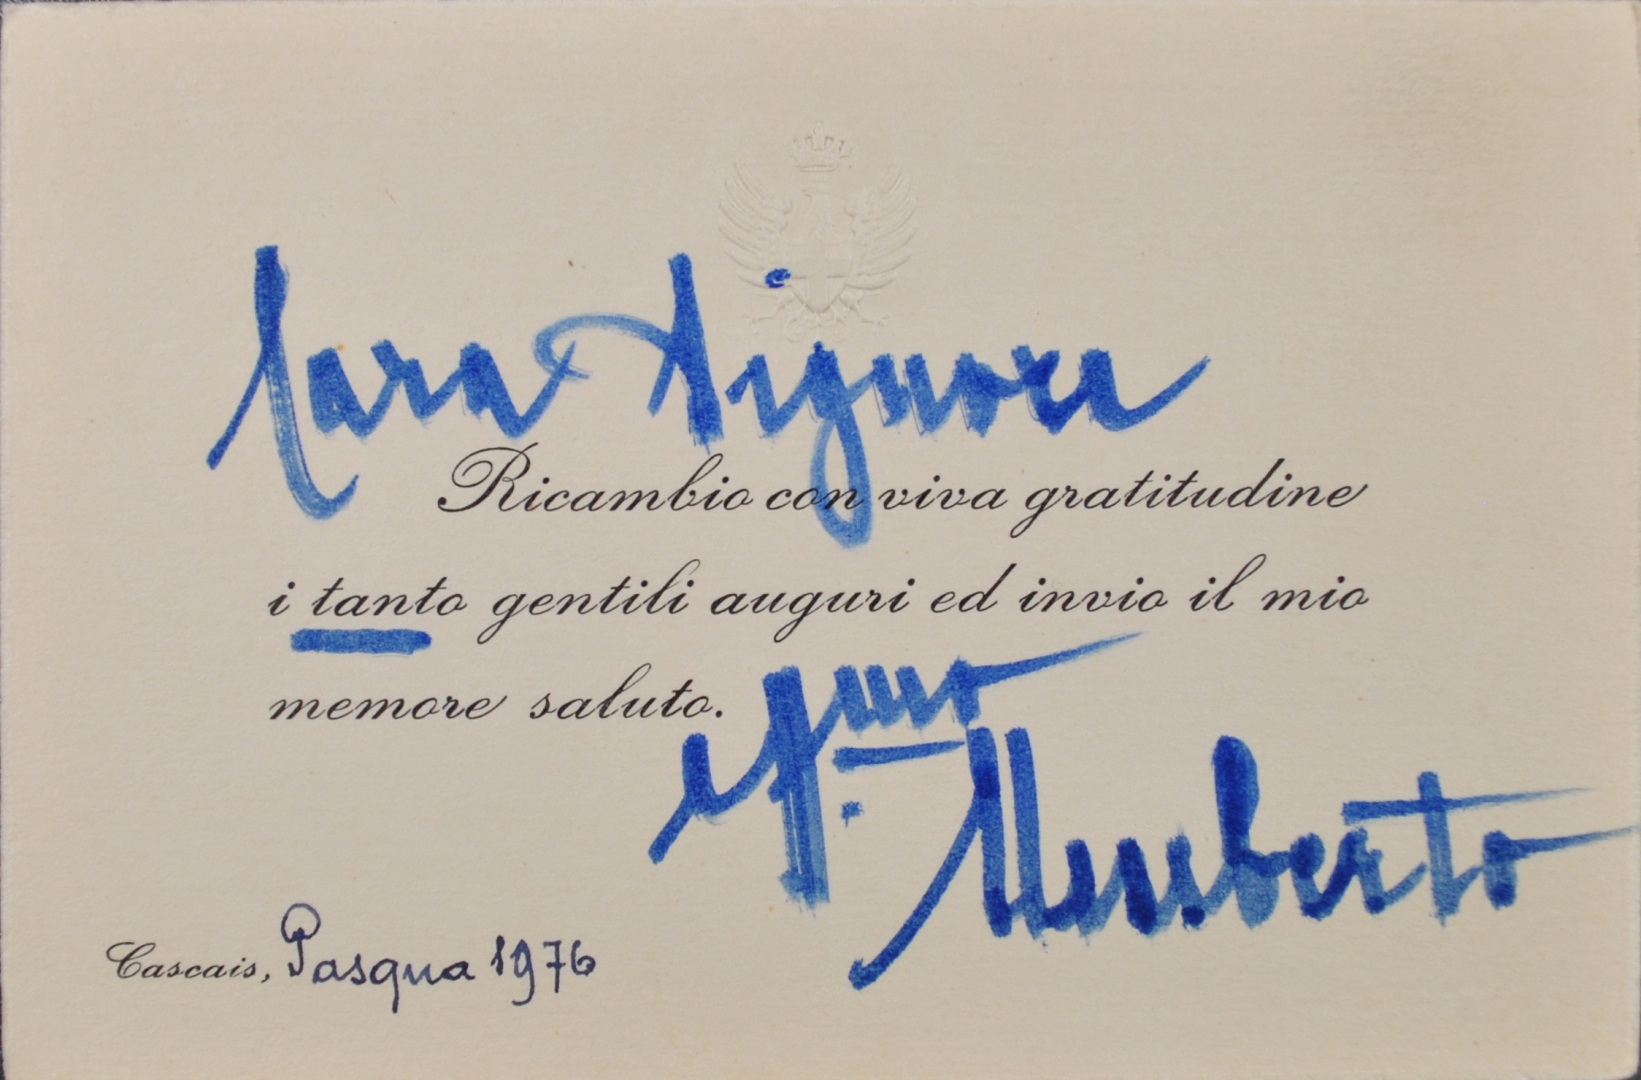 Cara Signora
Ricambio con viva gratitudine
i tanto gentili auguri ed invio il mio
memore saluto.
Umberto
Cascais, Pasqua 1976